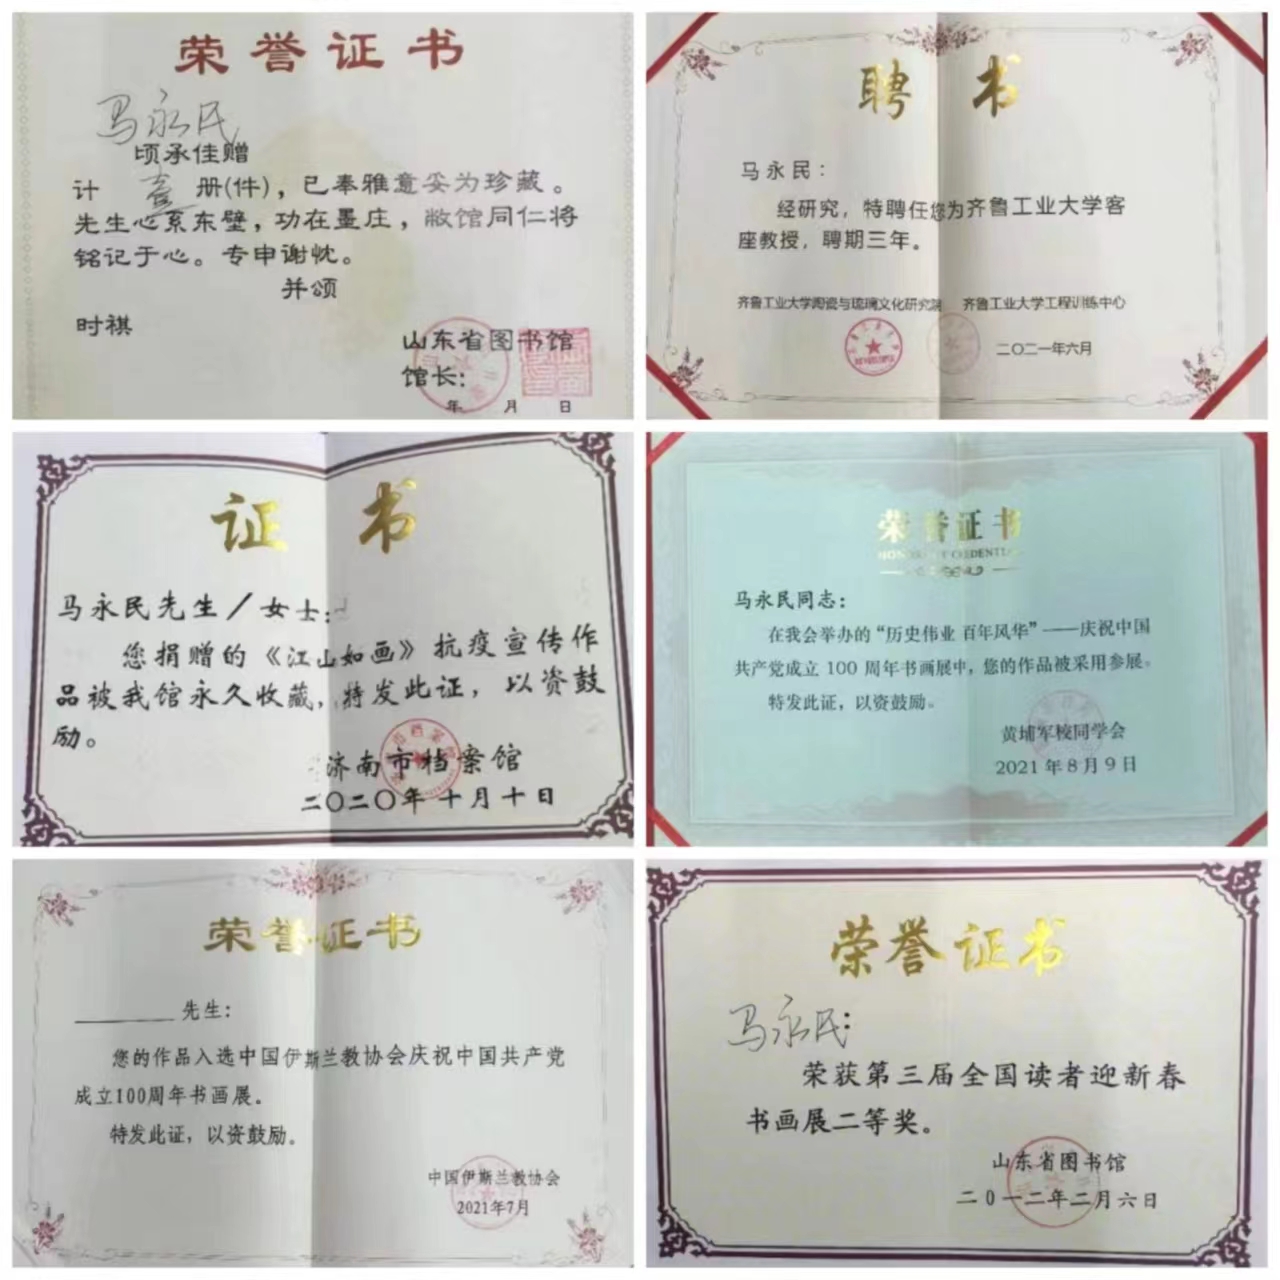 荣誉证书
马永民
顷承佳赠
计 壹 册(件)，已奉雅意妥为珍藏。
先生心系东壁，功在墨庄，敝馆同仁将
铭记于心。专申谢忱。
并颂
时祺
山东省图书馆
馆长：
年 月 日
聘 书
马永民：
经研究，特聘任您为齐鲁工业大学客
座教授，聘期三年。
齐鲁工业大学陶瓷与琉璃文化研究院 齐鲁工业大学工程训练中心
二〇二一年六月
证 书
马永民先生/女士：
您捐赠的《江山如画》抗疫宣传作
品被我馆永久收藏，特发此证，以资鼓
励。
济南市档案馆
二〇二〇年十月十日
荣誉证书
HONORARY CREDENTIAL
马永民同志：
在我会举办的“历史伟业 百年风华”——庆祝中国
共产党成立 100 周年书画展中，您的作品被采用参展。
特发此证，以资鼓励。
黄埔军校同学会
2021 年 8 月 9 日
荣誉证书
先生：
您的作品入选中国伊斯兰教协会庆祝中国共产党
成立100周年书画展。
特发此证，以资鼓励。
中国伊斯兰教协会
2021年7月
荣誉证书
马永民：
荣获第三届全国读者迎新春
书画展二等奖。
山东省图书馆
二〇一二年二月六日